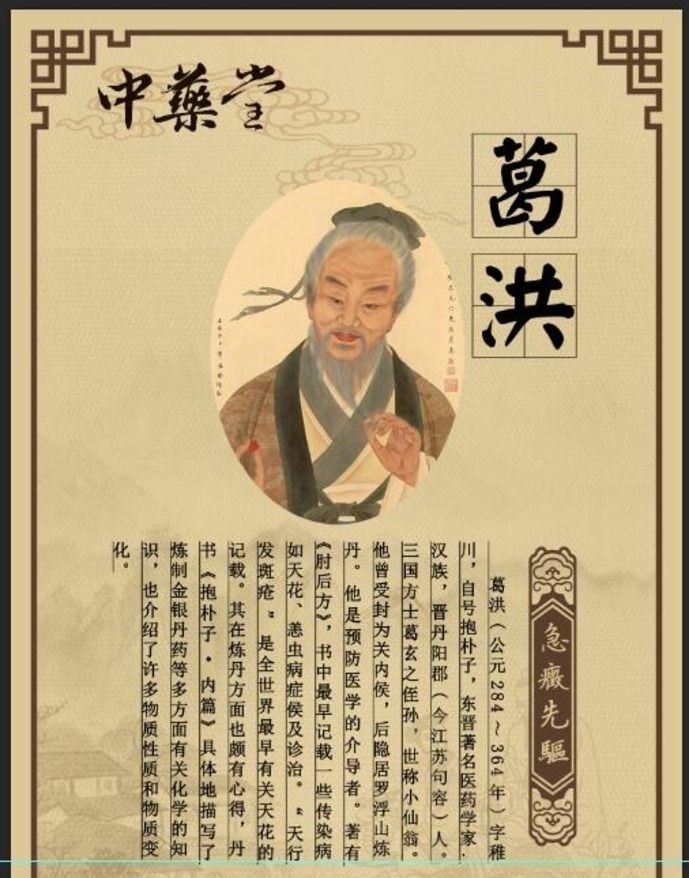 中藥堂
葛洪
急癥先驅
葛洪（公元284～364年）字稚
川，自号抱朴子，东晋著名医药学家.
汉族，晋丹阳郡（今江苏句容）人。
三国方士葛玄之侄孙，世称小仙翁。
他曾受封为关内侯，后隐居罗浮山炼
丹。他是预防医学的介导者。著有
《肘后方》，书中最早记载一些传染病
如天花、恙虫病症侯及诊治。“天行
发斑疮”是全世界最早有关天花的
记载。其在炼丹方面也颇有心得，丹
书《抱朴子·内篇》具体地描写了
炼制金银丹药等多方面有关化学的知
识，也介绍了许多物质性质和物质变
化。